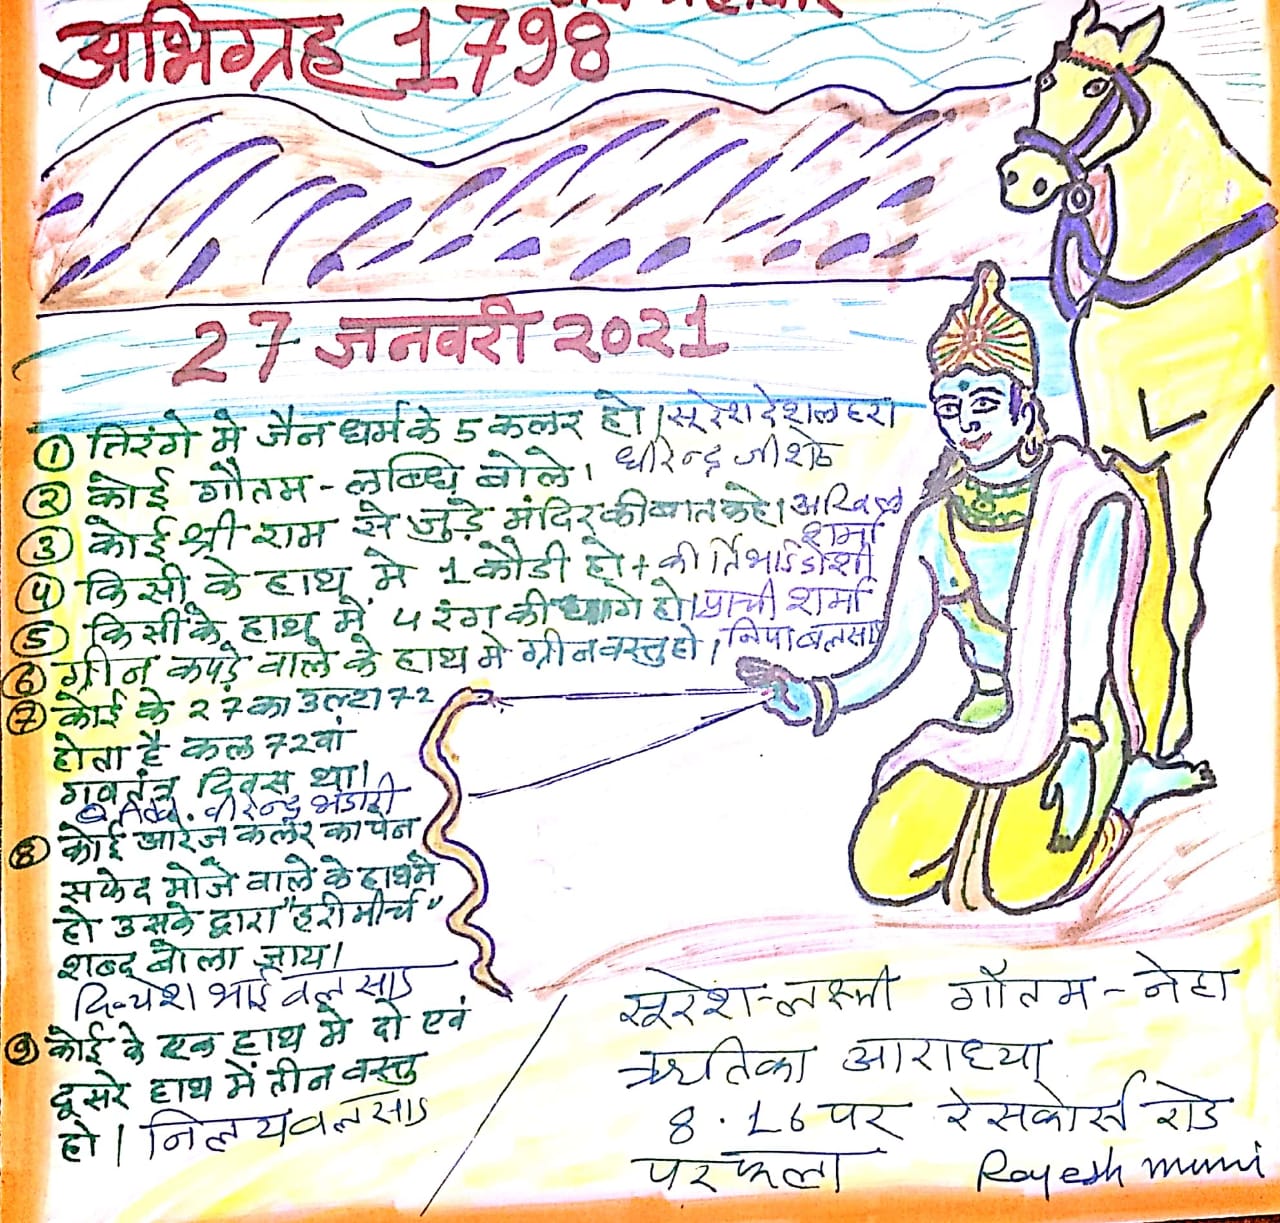 जय महावीर
अभिग्रह 1798
27 जनवरी २०२1
① तिरंगे मे जैन धर्म के 5 कलर हो। सूरेश देशलहरा
② कोई गौतम - लब्धि बोले। धीरेन्द्र जी शेठ
③ कोई श्री राम से जुड़े मंदिर की बात कहे। अखिल शर्मा
④ किसी के हाथ मे 1 कौडी हो + कीर्तिभाई डोशी
⑤ किसी के हाथ में 4 रंग की धागे हो। प्राची शर्मा
⑥ ग्रीन कपड़े वाले के हाथ मे ग्रीन वस्तु हो। निपा वलसाड
⑦ कोई के २7 का उल्टा 7२
होता है कल 7२वां
गवतंत्र दिवस था।
Adv. वीरेन्द्र भंडारी
⑧ कोई आरेंज कलर का पेन
सफेद मोजे वाले के हाथ मे
हो उसके द्वारा "हरी मीर्च"
शब्द बोला जाय।
दिव्येश भाई वलसाड
⑨ कोई के एक हाथ में दो एवं
दूसरे हाथ में तीन वस्तु
हो। निलय वलसाड
सूरेश-लक्ष्मी गौतम-नेहा
आराध्या
8.16 पर रेसकोर्स रोड
पर फला
Rajesh muni